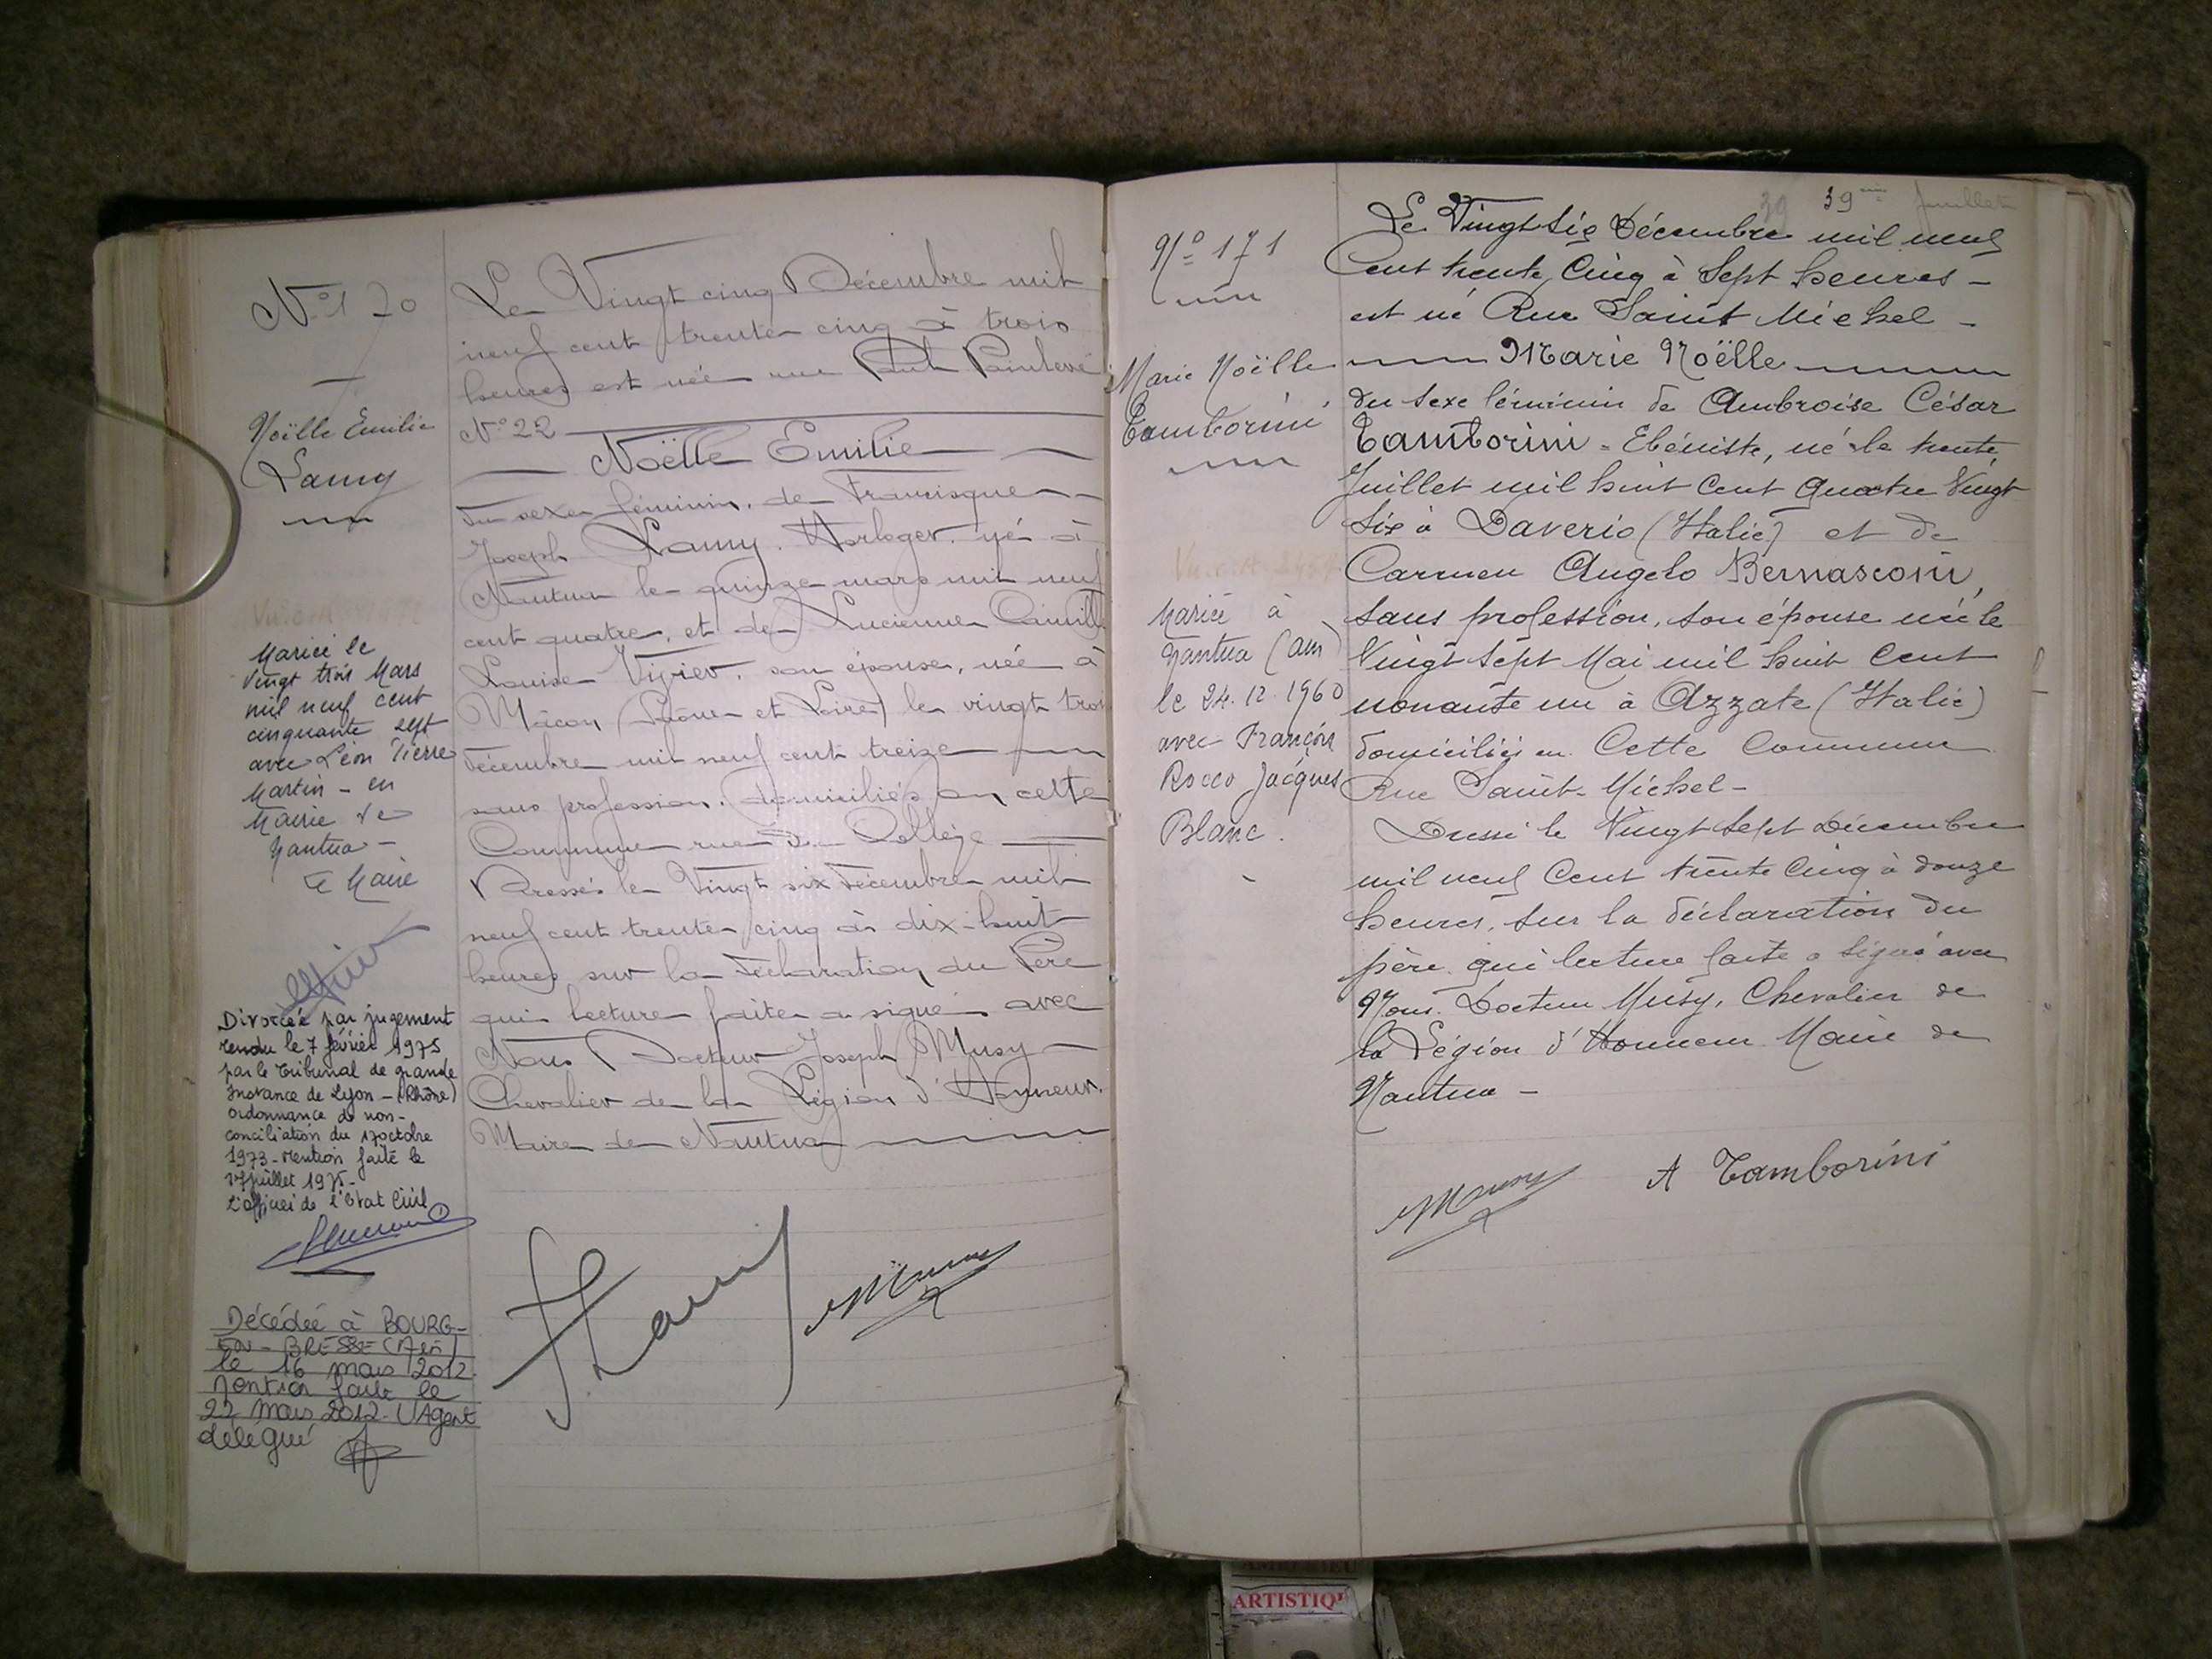 N° 170
Noëlle Emilie
Lamy
Mariée le
vingt trois Mars
mil neuf cent
cinquante sept
avec Léon Pierre
Martin - en
Mairie de
Nantua -
Le Maire
Divorcée par jugement
rendu le 7 février 1975
par le Tribunal de grande
Instance de Lyon - (Rhône)
ordonnance de non-
conciliation du 17 octobre
1973 - Mention faite le
juillet 1975 -
L'officier de l'Etat Civil
Décédée à BOURG-
EN-BRESSE (Ain)
le 16 mars 2012.
Mention faite le
22 mars 2012. L'Agent
délégué
Le Vingt cinq Décembre mil
neuf cent trente cinq à trois
heures est née rue Paul Painlevé
N° 22
Noëlle Emilie
du sexe féminin, de Francisque
Joseph Lamy. Horloger, né à
Nantua le quinze mars mil neuf
cent quatre, et de Lucienne Camille
Louise Vizier, son épouse, née à
Mâcon (Saône et Loire) le vingt trois
décembre mil neuf cent treize
sans profession, domiciliés en cette
Commune rue du Collège
Dressé le Vingt six Décembre mil
neuf cent trente cinq à dix-huit
heures sur la déclaration du Père
qui lecture faite a signé avec
Nous Docteur Joseph Musy -
Chevalier de la Légion d'Honneur.
Maire de Nantua
Lamy Musy
39 39me feuillet
N° 171
Marie Noëlle
Tamborini
Mariée à
Nantua (Ain)
le 24.12.1960
avec François
Rocco Jacques
Blanc.
Le Vingt Six Décembre mil neuf
Cent trente Cinq à Sept heures -
est né Rue Saint Michel -
Marie Noëlle
du sexe féminin de Ambroise César
Tamborini - Ebéniste, né le trente
Juillet mil huit Cent Quatre Vingt
Six à Daverio (Italie) et de
Carmen Angelo Bernasconi,
sans profession, son épouse née le
Vingt Sept Mai mil huit Cent
nonante un à Azzate (Italie)
domiciliés en Cette Commune
Rue Saint-Michel -
Dressé le Vingt Sept Décembre
mil neuf Cent trente Cinq à douze
heures, sur la déclaration du
père qui lecture faite a signé avec
Nous Docteur Musy, Chevalier de
la Légion d'Honneur Maire de
Nantua -
Musy A Tamborini
ARTISTIQ